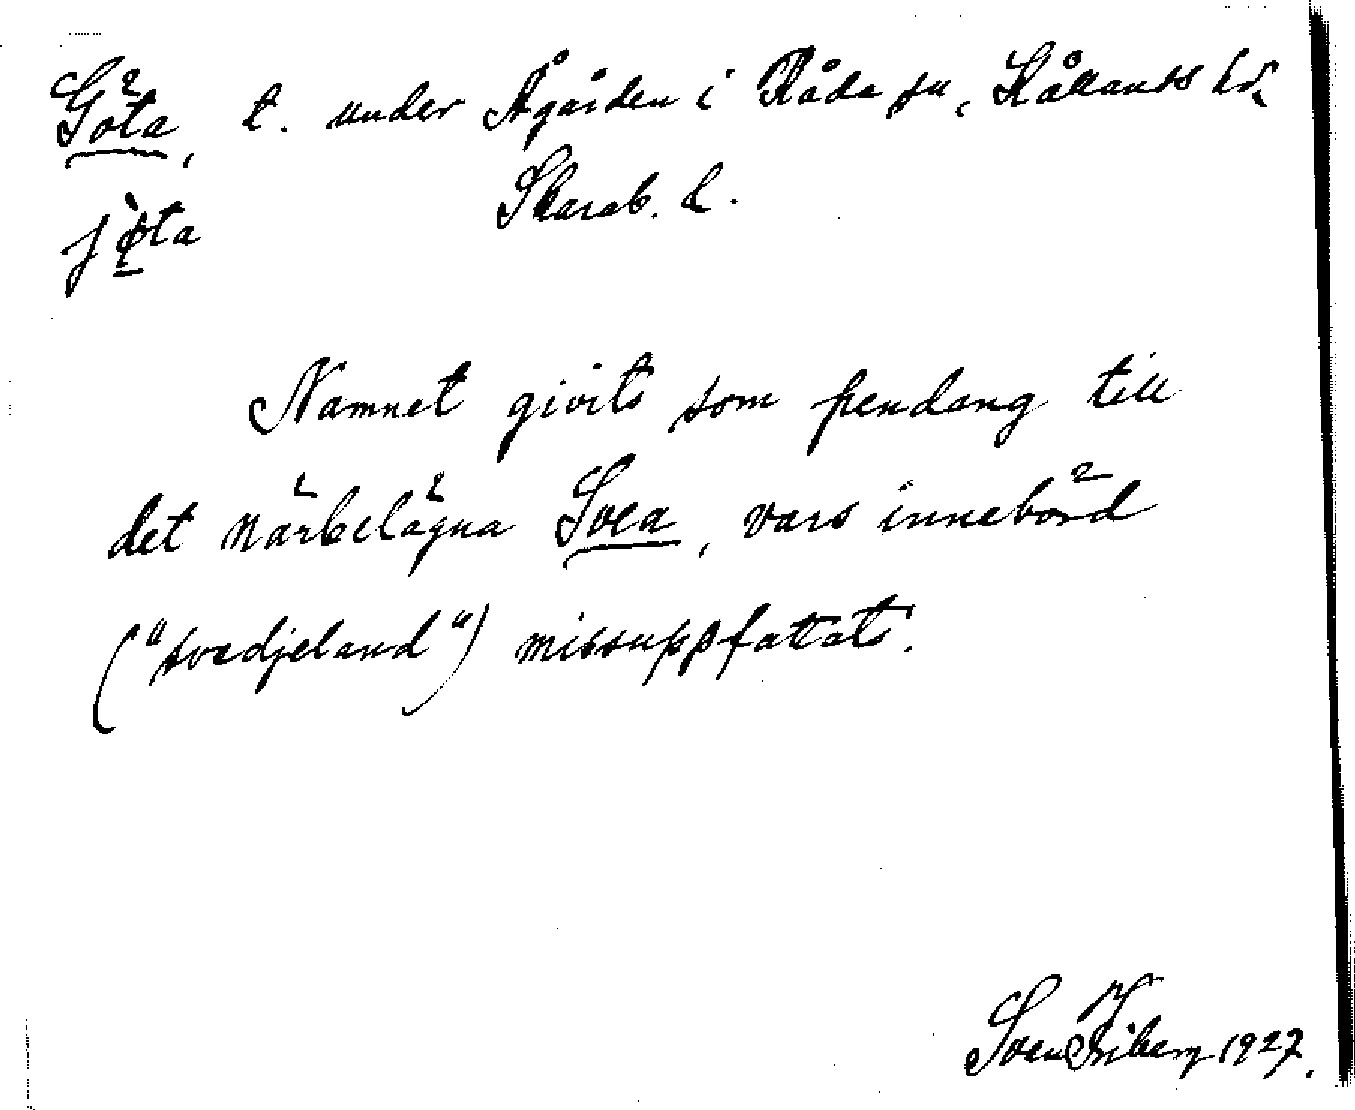 Göta, t. under Ågården i Råda sn, Kållands hd,
Skarab. l.
jø̀ta
Namnet givits som pendang till
det närbelägna Svea, vars innebörd
("svedjeland") missuppfatats.
Sven Friberg 1927.